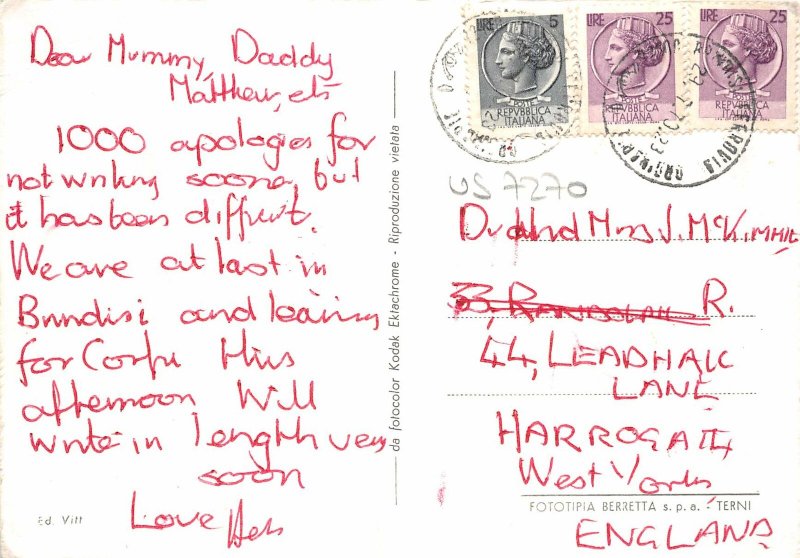 Dear Mummy, Daddy
Matthew, etc
1000 apologies for
not writing sooner, but
it has been difficult.
We are at last in
Brindisi and leaving
for Corfu this
afternoon Will
write in length very
soon
Love
Ed. Vitt
da fotocolor Kodak Ektachrome - Riproduzione vietata
LIRE 5
POSTE
REPVBBLICA
ITALIANA
LIRE 25
POSTE
REPVBBLICA
ITALIANA
LIRE 25
POSTE
REPVBBLICA
ITALIANA
US 7270
Dr and Mrs J. McKimmie
33, RANDOLPH R.
44, LEADHALL
LANE
HARROGATE,
West Yorks
ENGLAND
FOTOTIPIA BERRETTA s.p.a. - TERNI